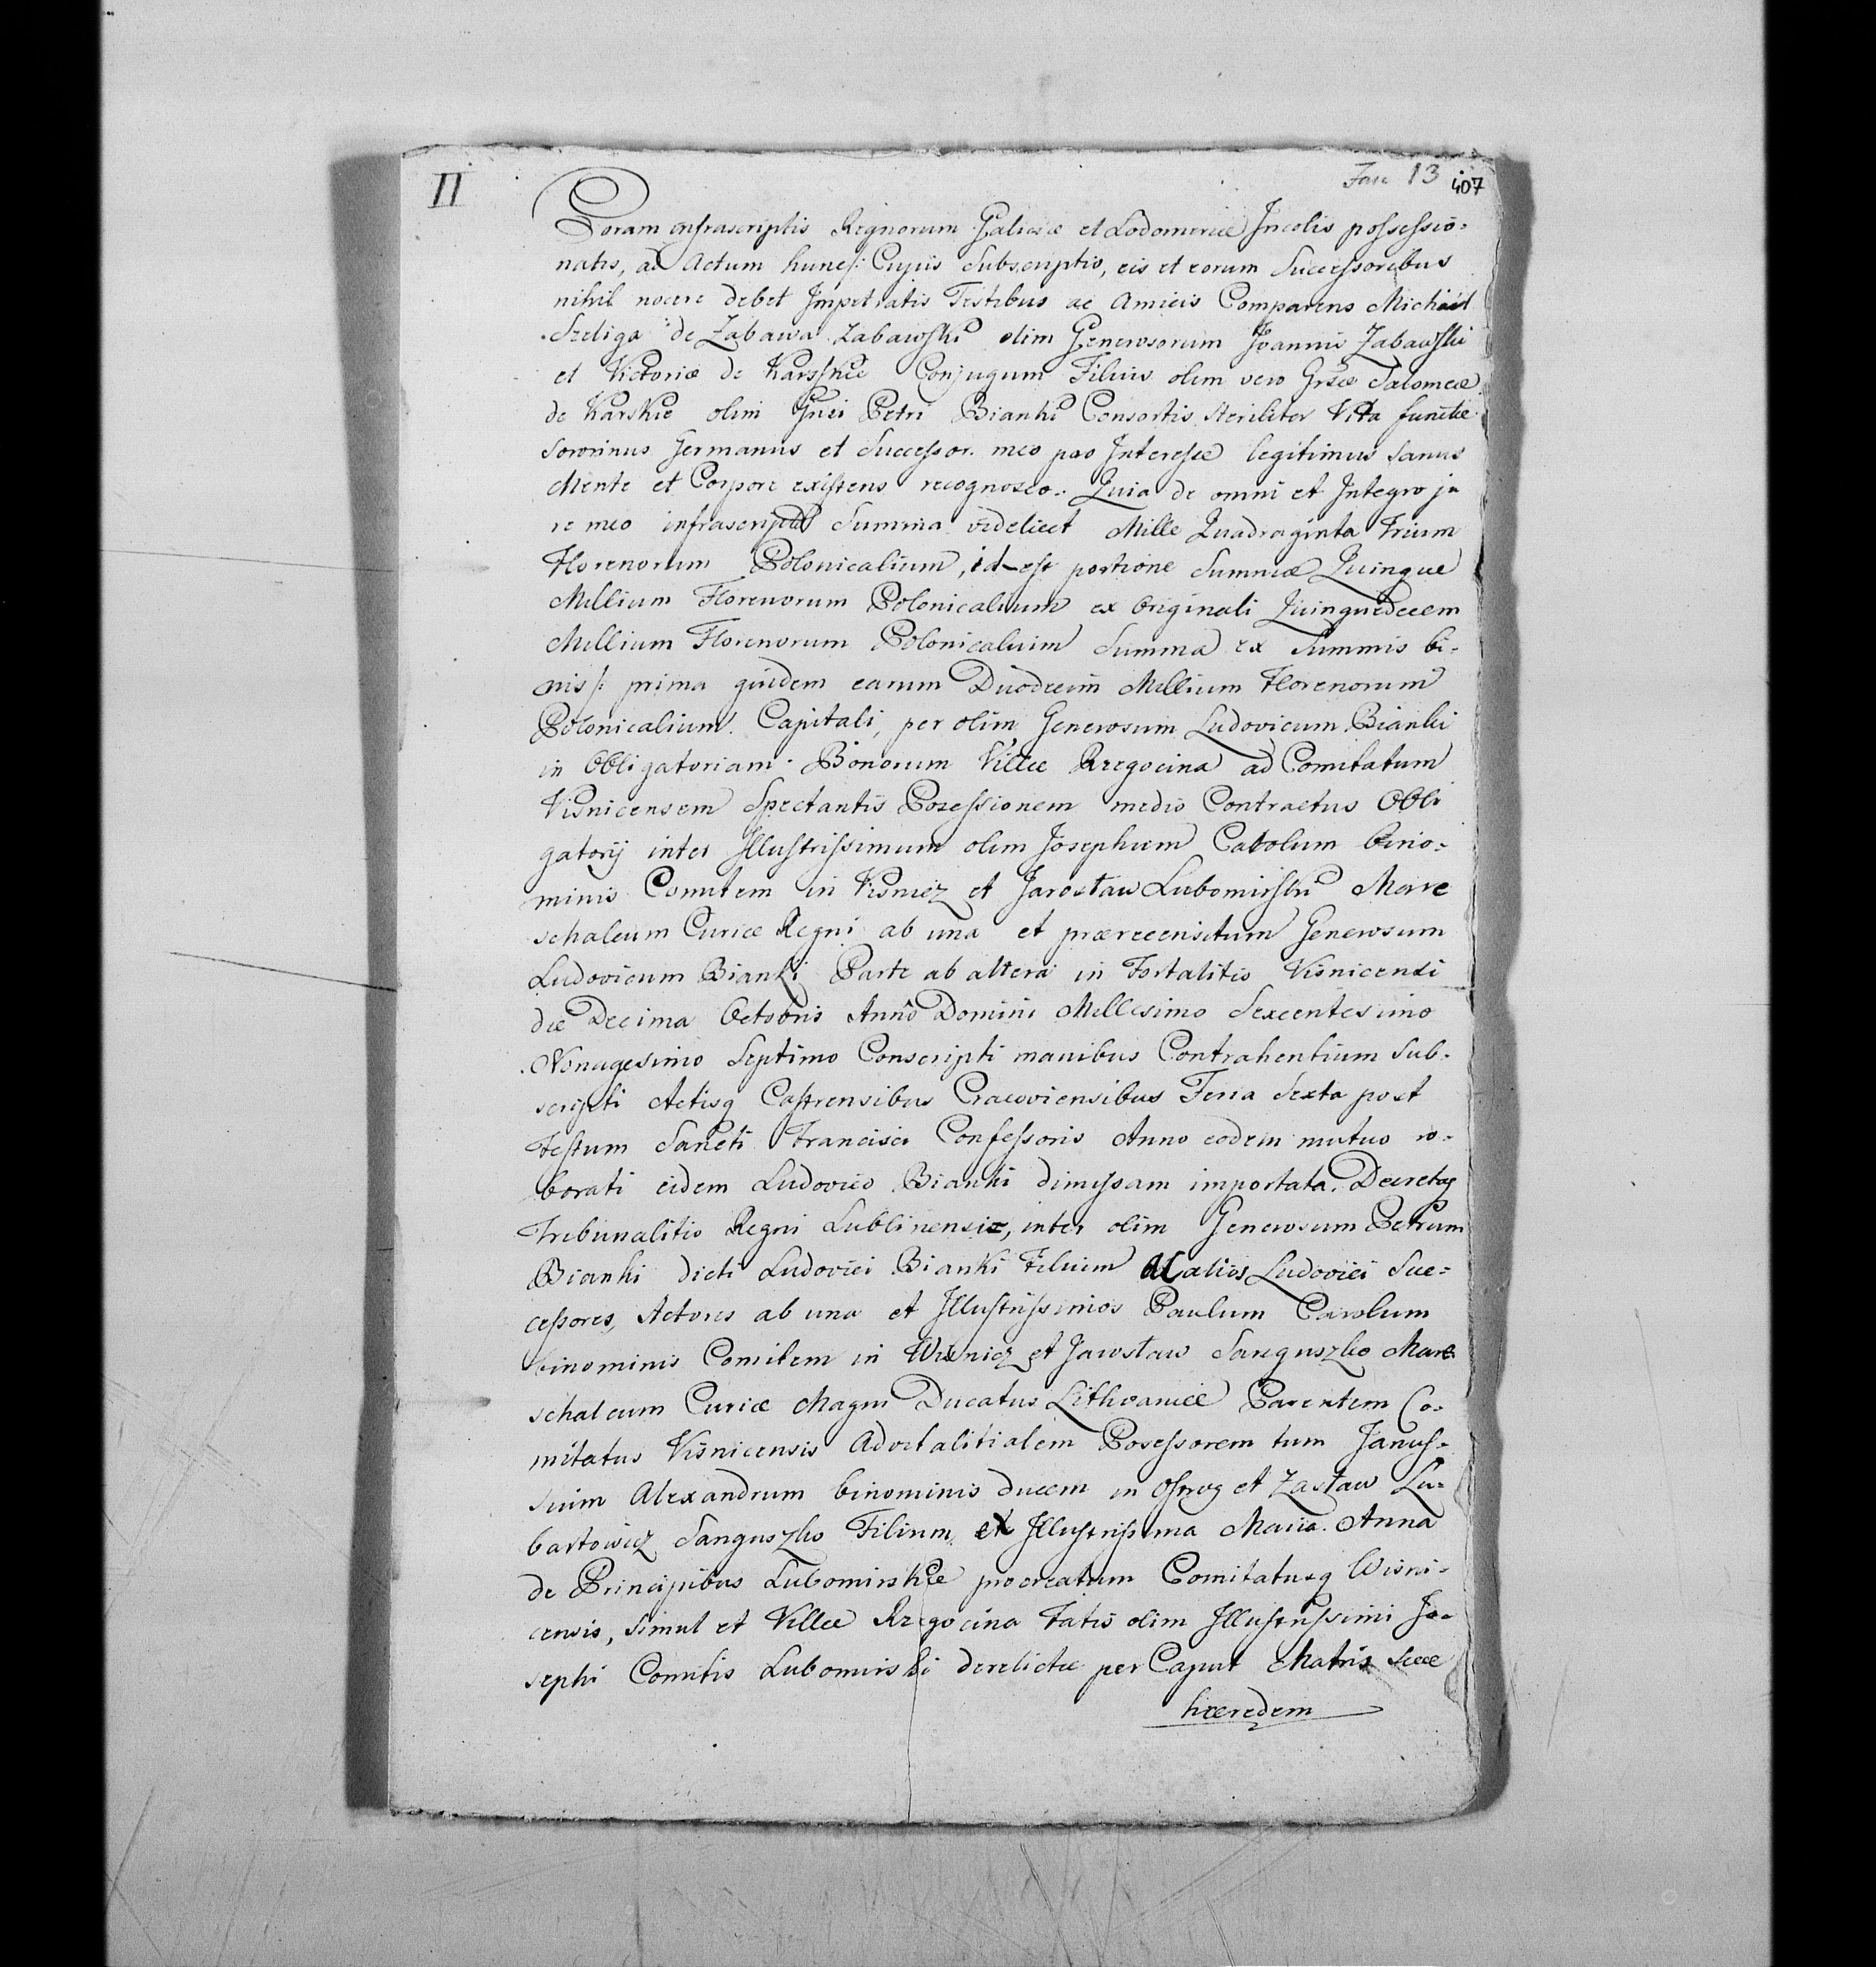 II
Fasc 13 407
Coram infrascriptis Regnorum Galiciæ et Lodomeriæ Incolis possessio-
natis, ad Actum hunc /: Cujus Subscriptio, eis et eorum Successoribus
nihil nocere debet Impetratis Testibus ac Amicis Comparens Michael
Szeliga de Zabawa Zabawski olim Generosorum Joannis Zabawski
et Victoriæ de Karskie Conjugum Filius olim vero Grsæ Salomeæ
de Karskie olim Gnei Petri Bianki Consortis steriliter Vita functæ
Sororinus Germanus et Successor meo pro Interesse legitimus Sanus
Mente et Corpore existens recognosco: Quia de omni et Integro ju
re meo infrascripta Summa videlicet Mille Quadraginta Trium
Florenorum Polonicalium, id est portione Summæ Quinque
Millium Florenorum Polonicalium ex Originali Quinquedecem
Millium Florenorum Polonicalium Summa ex Summis bi-
nis /: prima quidem earum Duodecim Millium Florenorum
Polonicalium Capitali, per olim Generosum Ludovicum Bianki
in Obligatoriam Bonorum Villæ Rzegocina ad Comitatum
Visnicensem Spectantis Posessionem medio Contractus Obli
gatorij inter Illustrissimum olim Josephum Carolum bino-
minis Comitem in Visnicz et Jarosław Lubomirski Mare
schalcum Curiæ Regni ab una et præreccensitum Generosum
Ludovicum Bianki Parte ab altera in Fortalitio Visnicensi
die Decima Octobris Anno Domini Millesimo Sexcentesimo
Nonagesimo Septimo Conscripti manibus Contrahentium Sub-
scripti Actisq Castrensibus Cracoviensibus Feria Sexta post
Festum Sancti Francisci Confessoris Anno eodem mutuo ro-
borati eidem Ludovico Bianki dimissam importata Decretoq
Tribunalitio Regni Lublinensi, inter olim Generosum Petrum
Bianki dicti Ludovici Bianki Filium alios Ludovici Suc-
cessores, Actores ab una et Illustrissimos Paulum Carolum
binominis Comitem in Wisnicz et Jarosław Sanguszko Mare
schalcum Curiæ Magni Ducatus Lithvaniæ Parentem Co-
mitatus Visnicensis Advitalitialem Posessorem tum Janus-
sium Alexandrum binominis ducem in Ostrog et Zasław Lu-
bartowicz Sanguszko Filium ex Illustrissima Maria Anna
de Principibus Lubomirskie procreatum Comitatusq Wisni-
censis, Simul et Villæ Rzegocina Fatis olim Illustrissimi Jo-
sephi Comitis Lubomirski derelictæ per Caput Matris Suæ
hæredem